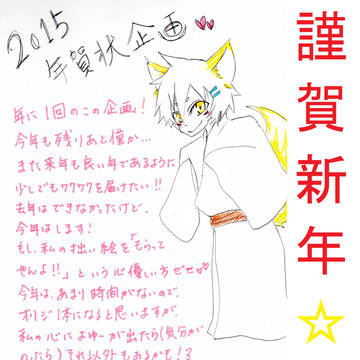 2015
年賀状企画♥♥
年に1回のこの企画!
今年も残りあと僅か…
また来年も良い年であるように
少しでもワクワクを届けたい!!
去年はできなかったけど、
今年はします!
もし、私の拙い絵を「もらって
やんよ!!」という心優しい方ぜひ♥♥
今年は、あまり時間がないので、
オリジ1本になると思いますが、
私の心によゆーが出たら(気分が
のったら)それ以外もあるかも!?
謹賀新年☆